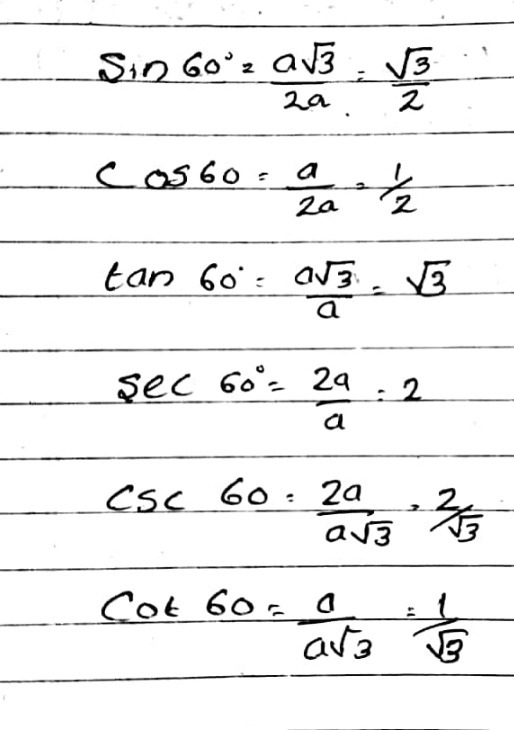 Sin 60° = a√3/2a = √3/2
Cos 60 = a/2a = 1/2
tan 60° = a√3/a = √3
Sec 60° = 2a/a = 2
CSC 60 = 2a/a√3 = 2/√3
Cot 60 = a/a√3 = 1/√3